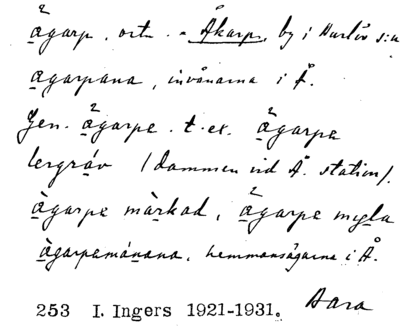 ägarp, ort. = Åkarp, by i Burlöv s:n
agarpana, invånarna i Å.
Gen. ägarpe. t.ex. ägarpe
lergráv (dammen vid Å. station).
àgarpe màrkad, ägarpe mygla
àgarpamánana, hemmansägarna i Å.
253 I. Ingers 1921-1931. Bara